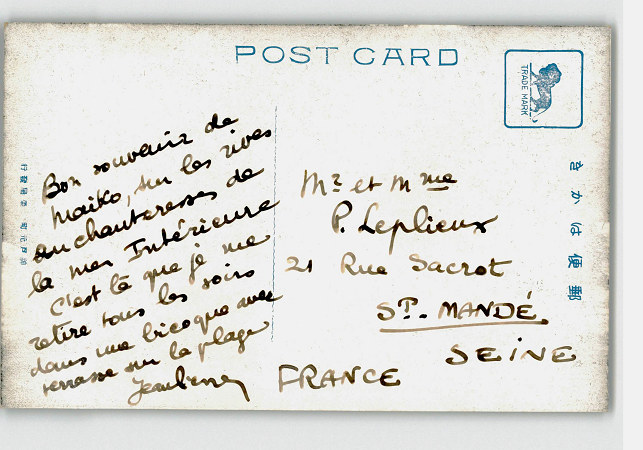 POST CARD
TRADE MARK
きかは便郵
Bon souvenir de
Maiko, sur les rives
enchanteresses de
la mer Intérieure
C'est là que je me
retire tous les soirs
dans une bicoque avec
terrasse sur la plage
Mr et Mme
P. Leplieux
21 Rue Sacrot
ST. MANDÉ
SEINE
FRANCE